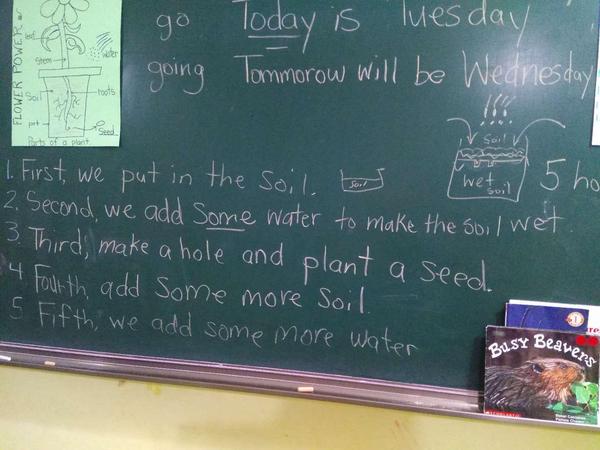 go Today is Tuesday
going Tommorow will be Wednesday
FLOWER POWER
leaf
water
stem
Soil
roots
pot
Seed
Parts of a plant.
soil
wet
soil
5 ho
1. First, we put in the soil.
soil
2. Second, we add Some water to make the soil wet
3. Third, make a hole and plant a seed.
4 Fourth, add Some more Soil.
5. Fifth, we add some more water
BUSY BEAVERS
SCHOLASTIC
1